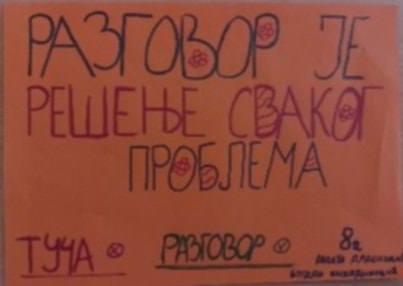 РАЗГОВОР ЈЕ
РЕШЕЊЕ СВАКОГ
ПРОБЛЕМА
ТУЧА РАЗГОВОР 8г